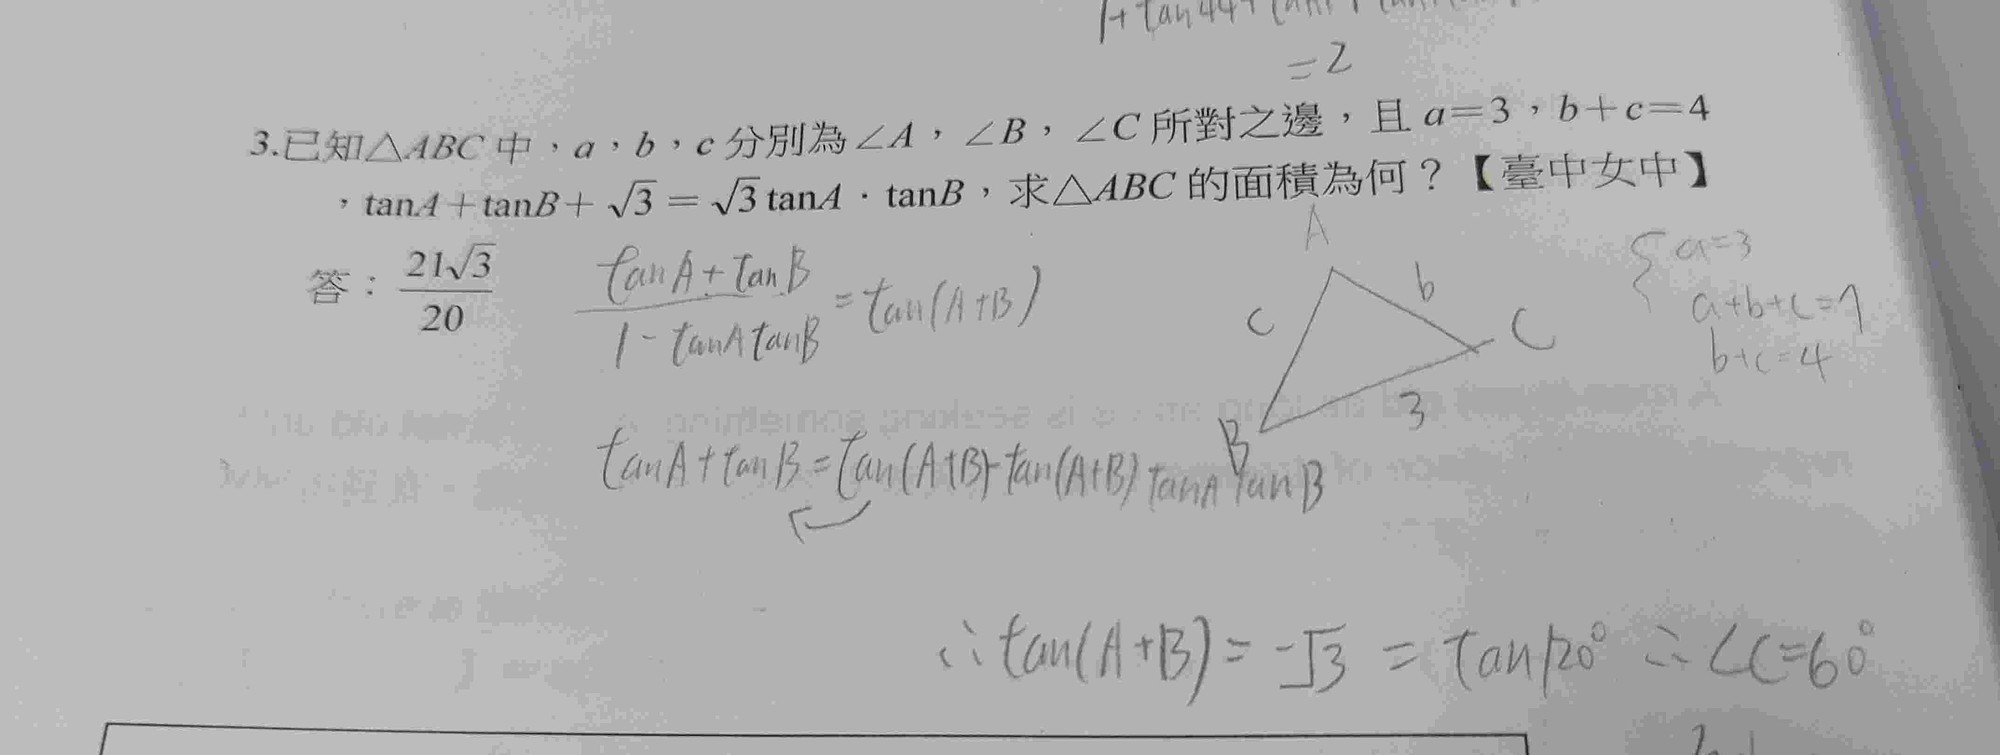 1+tan44+
=2
3.已知△ABC 中,a,b,c 分別為∠A,∠B,∠C 所對之邊,且 a=3,b+c=4
,tanA+tanB+√3=√3tanA·tanB,求△ABC 的面積為何?【臺中女中】
答:21√3/20
(tanA+tanB)/(1-tanAtanB)=tan(A+B)
A
b
c
C
3
B
{a=3
a+b+c=7
b+c=4
tanA+tanB=tan(A+B)-tan(A+B)tanAtanB
∴tan(A+B)=-√3=tan120° ∴∠C=60°